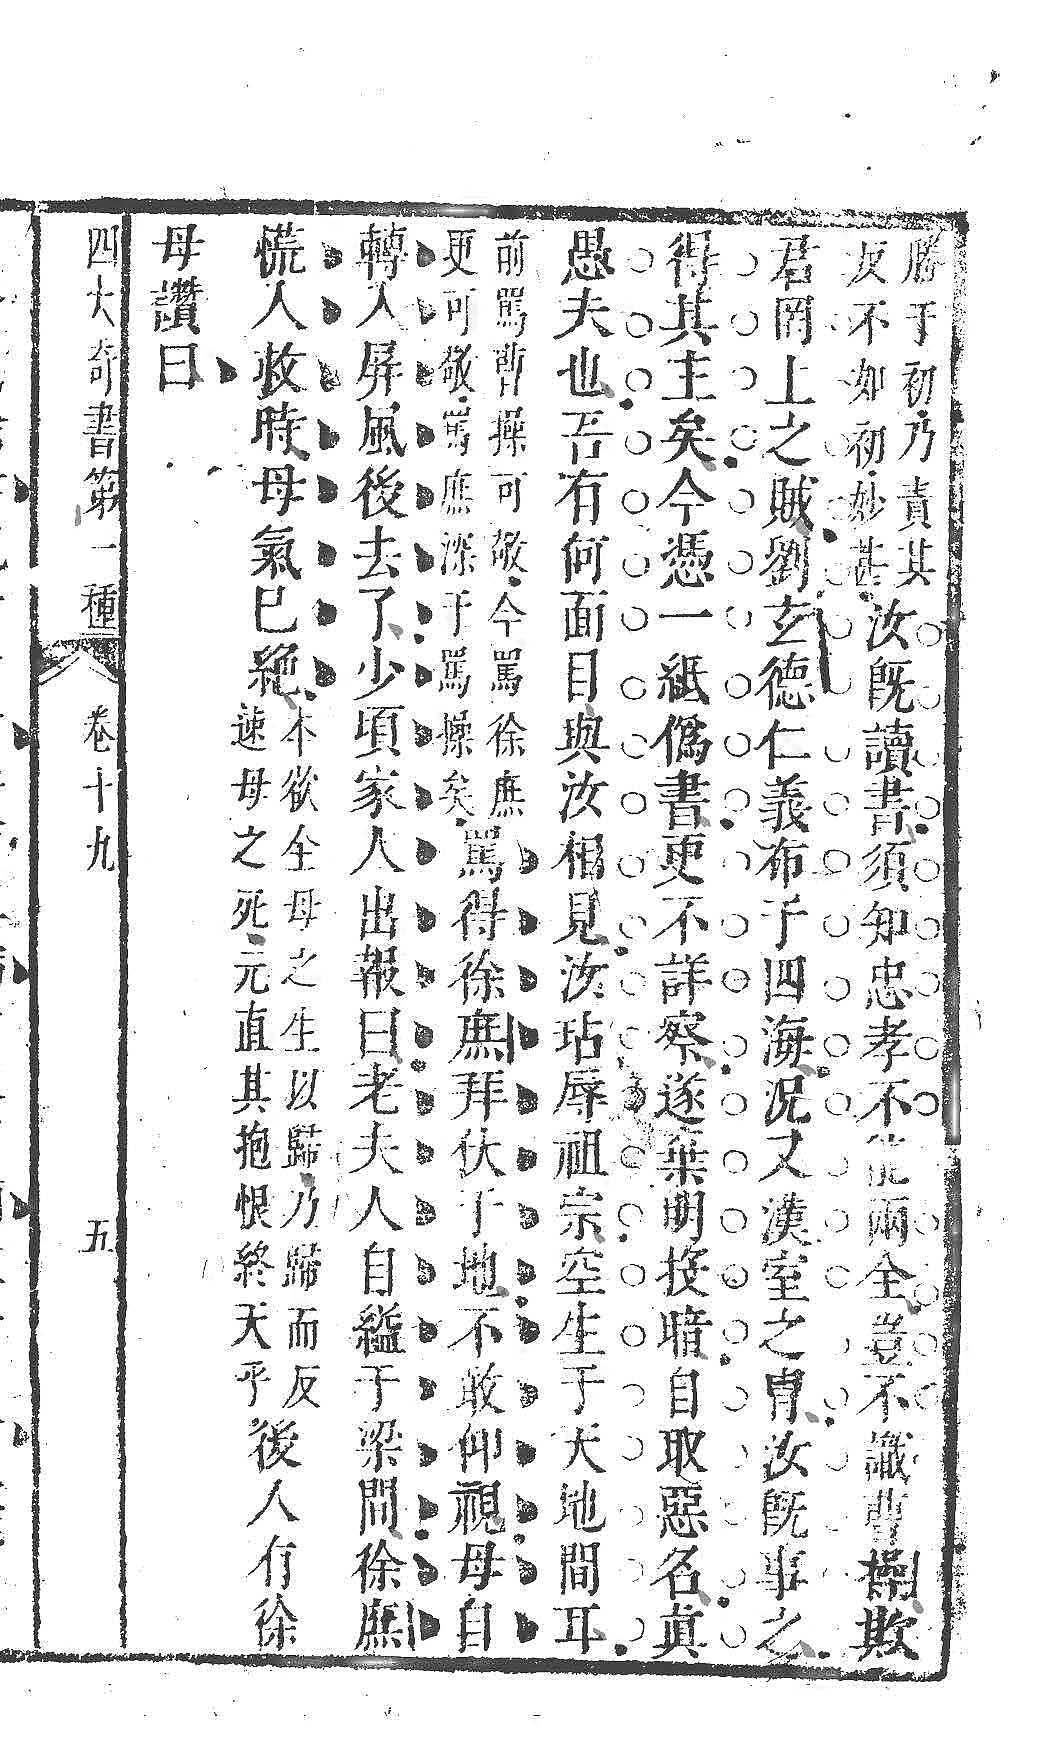 勝于初乃責其
反不如初妙甚
汝旣讀書須知忠孝不能兩全豈不識曹操欺
君罔上之賊劉玄德仁義布于四海況又漢室之冑汝旣事之
得其主矣今憑一紙僞書更不詳察遂棄明投暗自取惡名眞
愚夫也吾有何面目與汝相見汝玷辱祖宗空生于天地間耳
前罵曹操可敬今罵徐庶
更可敬罵庶深于罵操矣
罵得徐庶拜伏于地不敢仰視母自
轉入屏風後去了少頃家人出報曰老夫人自縊于梁間徐庶
慌入救時母氣已絶
本欲全母之生以歸乃歸而反
速母之死元直其抱恨終天乎
後人有徐
母讚曰
四大奇書第一種 卷十九 五